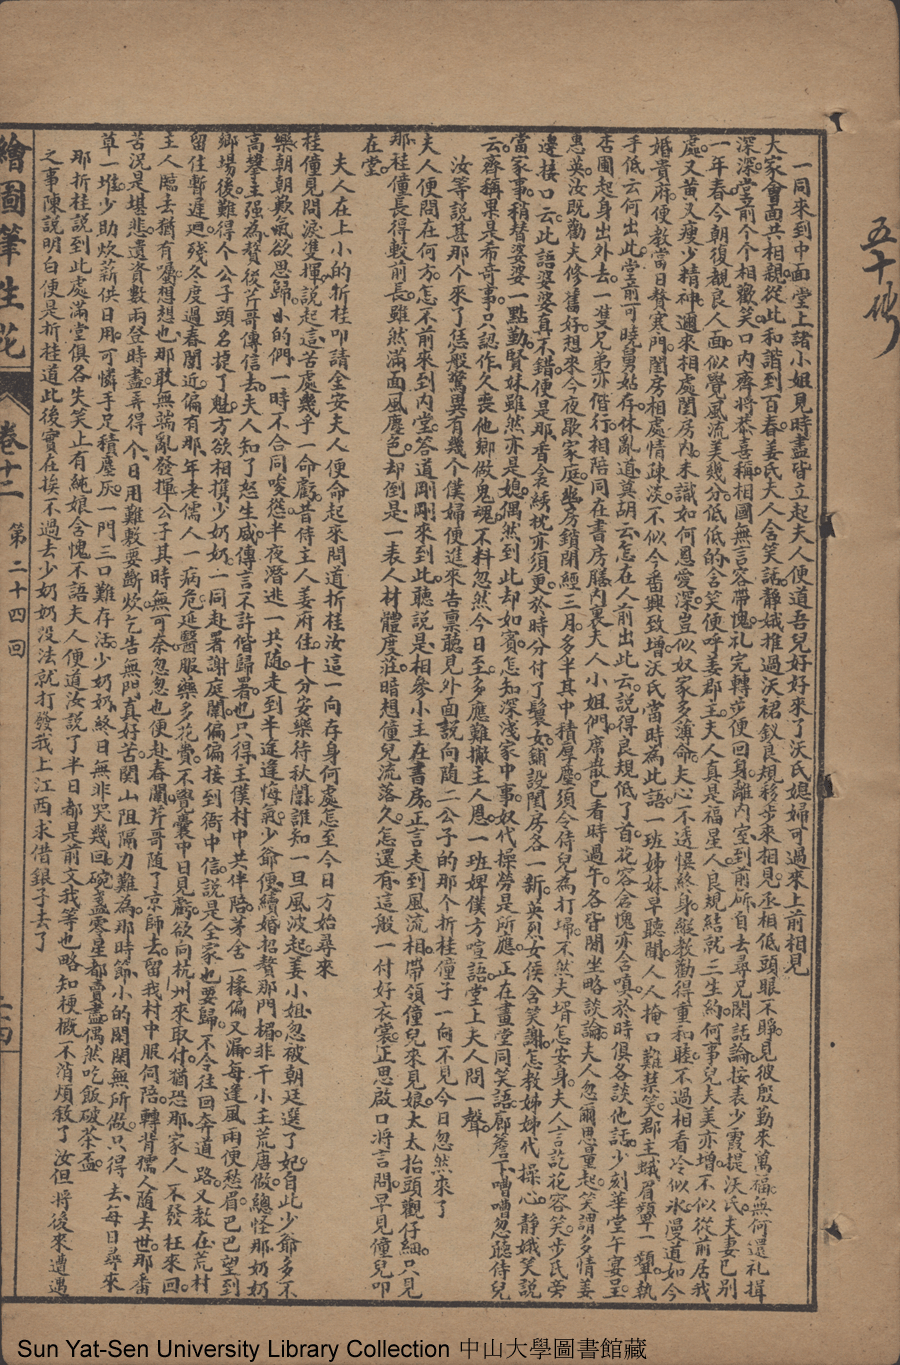 五十號
一同來到中面堂上諸小姐見時盡皆立起夫人便道吾兒好好來了沃氏媳婦可過來上前相見
大家會面共相親從此和諧到百春姜氏夫人含笑話靜娥推過沃裙釵良規移步來相見丞相低頭眼不睜見彼殷勤來萬福無何還礼揖
深深堂前个个相歡笑口內齊將恭喜稱相國無言容帶愧礼完轉步便回身離內室到前所自去尋兄閑話論按表少霞提沃氏夫妻已別
一年春今朝復覩良人面似覺風流美幾分低低的含笑便呼姜郡主夫人真是福星人良規結就三生約何事兒夫美亦增不似從前居我
處又黃又瘦少精神邇來相處閨房內未識如何恩愛深豈似奴家多薄命夫心不透悞終身縱教勸得重和睦不過相看冷似氷漫道如今
婚貴麻便教當日贅寒門閨房相處情疎淡不似今番興致增沃氏當時為此語一班姊妹早聽聞人人掩口難禁笑郡主蛾眉顰一顰執
手低云何出此堂前可曉舅姑存休亂道莫胡云怎在人前出此云說得良規低了首花容含愧亦含嗔於時俱各談他話少刻華堂午宴呈
杏圃起身出外去一雙兄弟亦偕行相陪同在書房膳內裏夫人小姐們席散已看時過午各皆閑坐略談論夫人忽爾思量起笑謂多情姜
惠英汝既勸夫修舊好想來今夜歇家庭幽房鎖閉經三月多半其中積厚塵須令侍兒為打埽不然夫壻怎安身夫人言訖花容笑步氏旁
邊接口云此語婆婆真不錯便是那香衾綉枕亦須更於時分付了鬟女舖設閨房各一新英烈女侯含笑謝怎教姊姊代操心靜娥笑說
當家事稍替婆婆一點勤賢妹雖然亦是媳偶然到此却如賓怎知深淺家中事奴代操勞是所應正在畫堂同笑語廊簷下嘈嘈忽聽侍兒
云齊稱果是希奇事只認作久喪他鄉做鬼魂不料忽然今日至多應難撇主人恩一班婢僕方喧語堂上夫人問一聲
汝等說甚那个來了恁般驚異有幾个僕婦便進來告稟聽見外面說向隨二公子的那个折桂僮子一向不見今日忽然來了
夫人便問在何方怎不前來到內堂答道剛剛來到此聽說是相參小主在書房正言走到風流相帶領僮兒來見娘太太抬頭觀仔細只見
那桂僮長得較前長雖然滿面風塵色却倒是一表人材體度莊暗想僮兒流落久怎還有這般一付好衣裳正思啟口將言問早見僮兒叩
在堂
夫人在上小的折桂叩請金安夫人便命起來問道折桂汝這一向存身何處怎至今日方始尋來
桂僮見問淚雙揮說起這苦處幾乎一命虧昔侍主人姜府住十分安樂待秋闈誰知一旦風波起姜小姐忽被朝廷選了妃自此少爺多不
樂朝朝歎氣欲思歸小的們一時不合同唆慫半夜潛逃一共隨走到半途逢悔氣少爺便續婚招贅那門楣非干小主荒唐做總怪那奶奶
高攀主强為贅後芹哥傳信去夫人知了怒生威傳言不許偕歸署也只得主僕村中共伴陪茅舍一椽偏又漏每逢風雨便愁眉巴巴望到
鄉塲後難得个公子頭名捷了魁方欲相携少奶奶一同赴署謝庭闈偏偏接到衙中信說是全家也要歸不令往回奔道路又教在荒村
留住暫遲迴殘冬度過春闈近偏有那年老儒人一病危延醫服藥多花費不覺囊中日見虧欲向杭州來取付猶恐那家人不發枉來回
主人臨去猶有凝想想也那敢無端亂發揮公子其時無可奈怱怱也便赴春闈芹哥隨了京師去留我村中服伺陪轉背孺人隨去世那番
苦況是堪悲遺資數兩登時盡弄得个日用難數要斷炊乞告無門真好苦関山阻隔力難為那時節小的閑閑無所做只得去每日尋來
草一堆少助炊薪供日用可憐手足積塵灰一門三口難存活少奶奶終日無非哭幾回碗盞零星都賣盡偶然吃飯破茶盃
那折桂說到此處滿堂俱各失笑上有純娘含愧不語夫人便道汝說了半日都是前文我等也略知梗概不消煩敘了汝但將後來遭遇
之事陳說明白便是折桂道此後實在挨不過去少奶奶没法就打發我上江西求借銀子去了
繪圖筆生花
卷十二
第二十四回
二十四
Sun Yat-Sen University Library Collection 中山大學圖書館藏